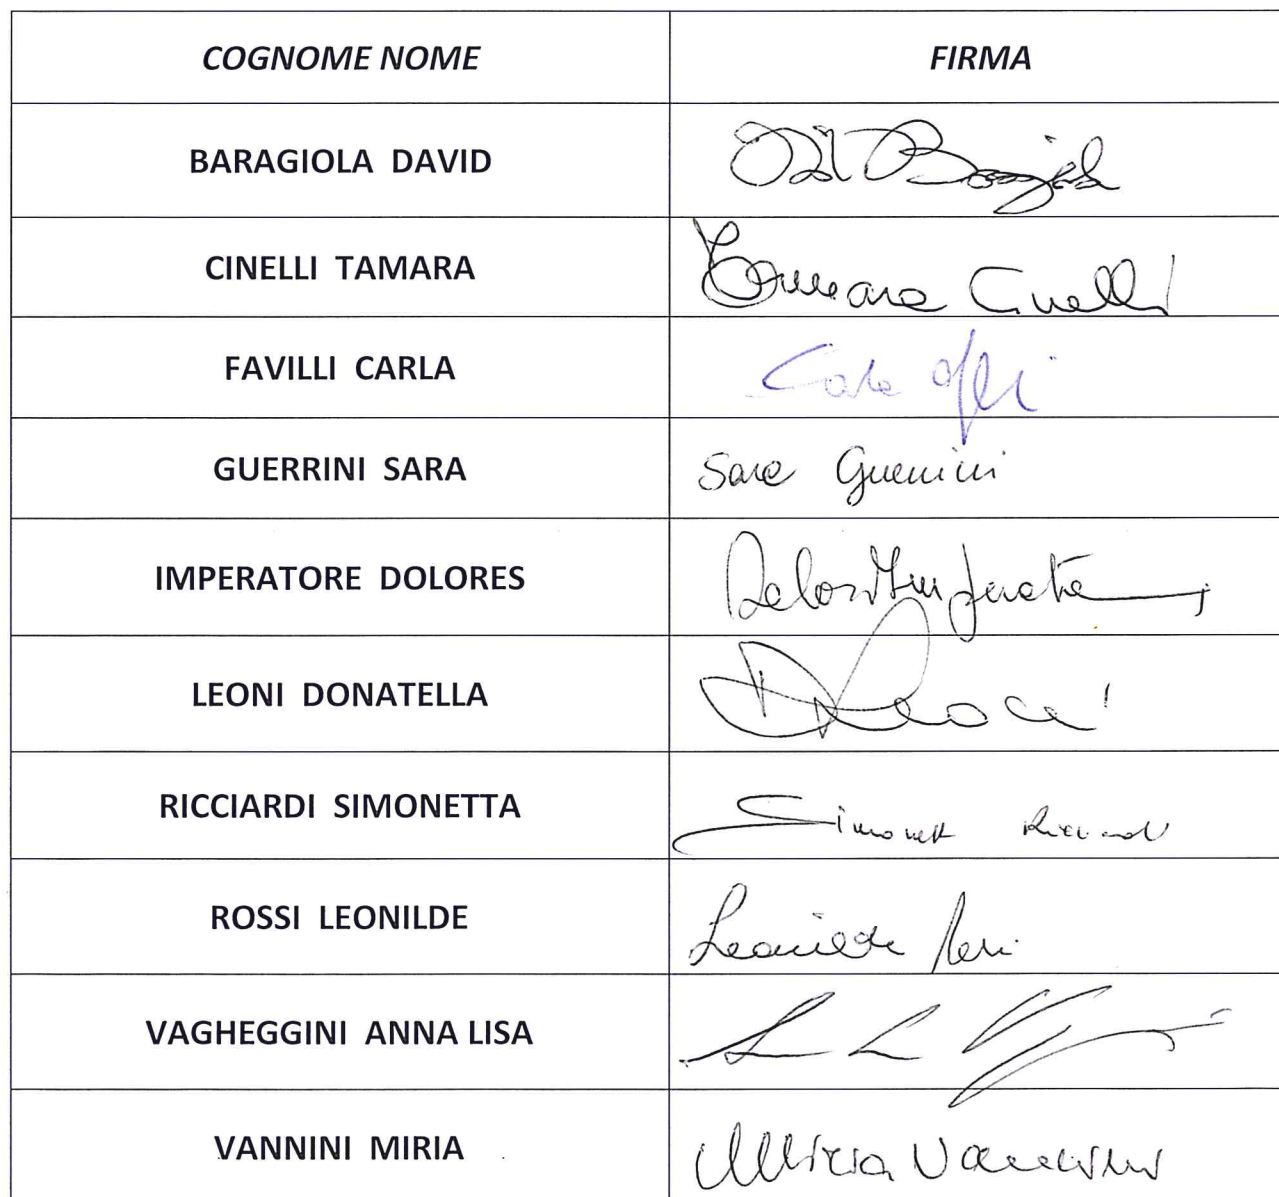 COGNOME NOME FIRMA
BARAGIOLA DAVID
CINELLI TAMARA Tamara Cinelli
FAVILLI CARLA Carla
GUERRINI SARA Sara Guerrini
IMPERATORE DOLORES Dolores Imperatore
LEONI DONATELLA
RICCIARDI SIMONETTA Simonetta Ricciardi
ROSSI LEONILDE Leonilde Rossi
VAGHEGGINI ANNA LISA
VANNINI MIRIA Miria Vannini